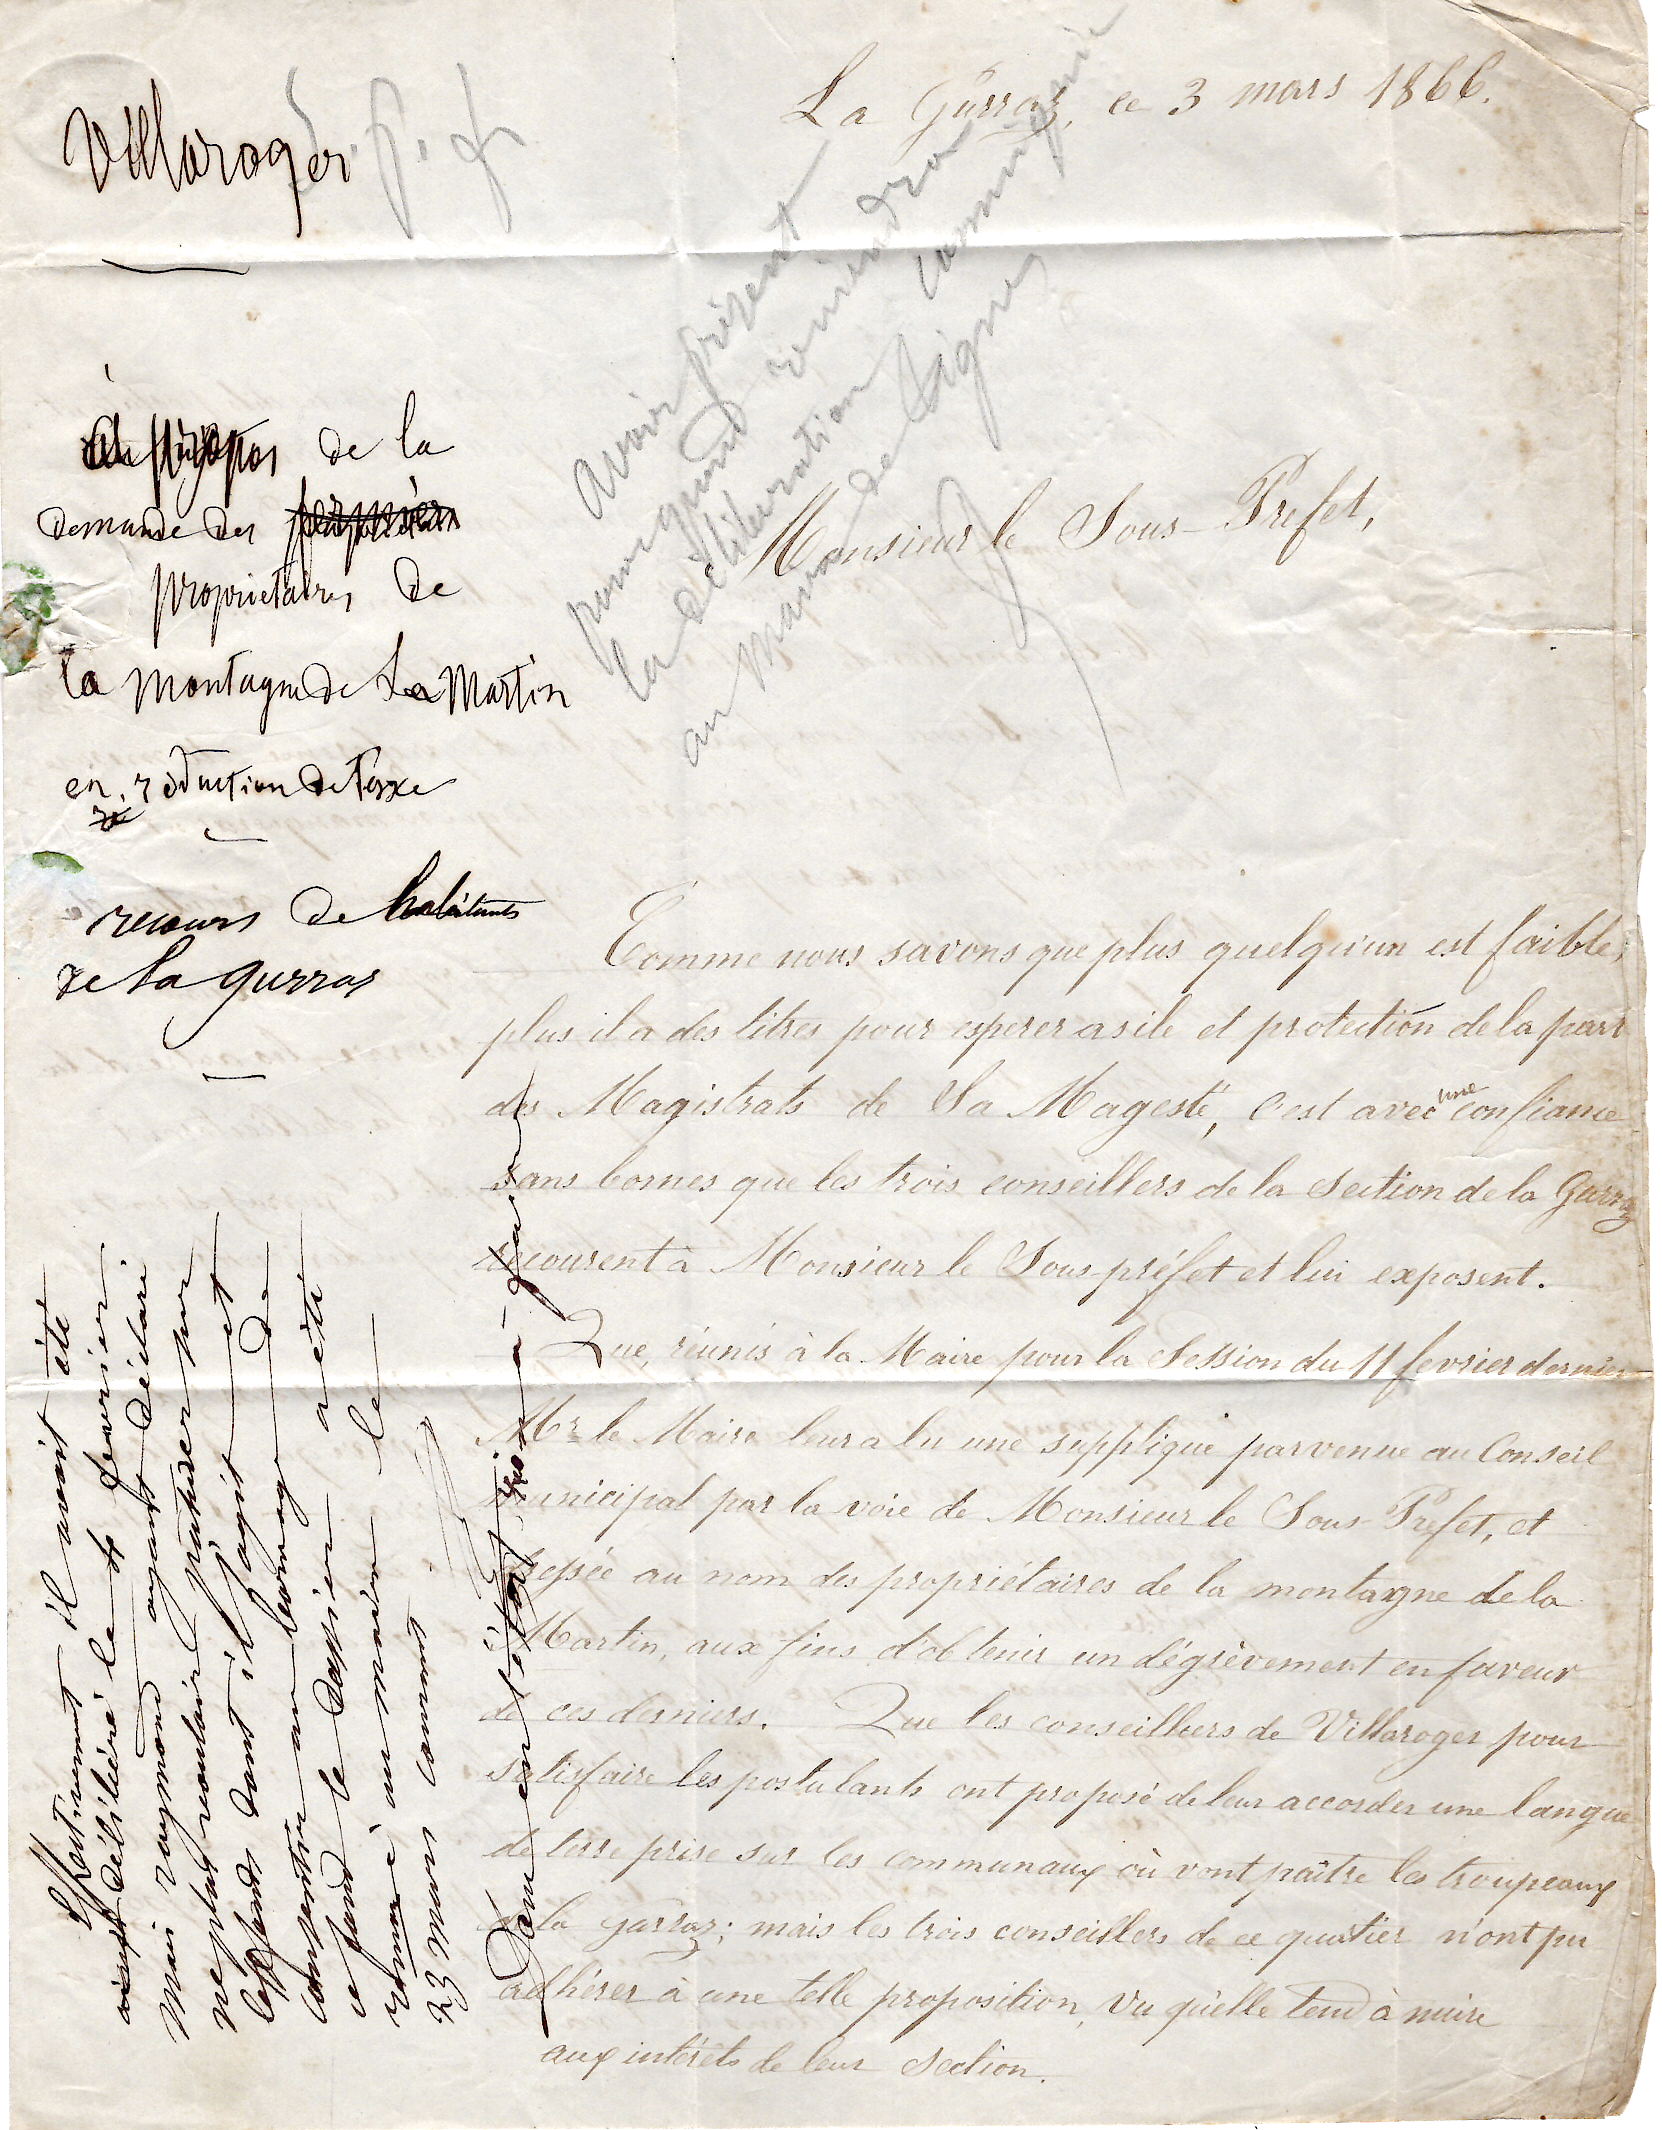 La Gurraz, ce 3 mars 1866.
Villaroger
avoir présent
pour quand reviendra
la délibération
au
de Tignes
Monsieur le Sous-Prefet,
de la
demande des
propriétaires de
la montagne de La Martin
en réduction de taxe
recours de habitants
de la gurraz
Comme nous savons que plus quelqu'un est faible,
plus il a des titres pour esperer asile et protection de la part
des Magistrats de Sa Magesté, c'est avec une confiance
sans bornes que les trois conseillers de la Section de la Gurraz
recourent à Monsieur le Sous-préfet et lui exposent.
Que, réunis à la Maire pour la Session du 11 fevrier dernier
Mr le Maire leur a lu une supplique parvenue au Conseil
municipal par la voie de Monsieur le Sous-Prefet, et
au nom des propriétaires de la montagne de la
Martin, aux fins d'obtenir un dégrèvement en faveur
de ces derniers. Que les conseillers de Villaroger pour
satisfaire les postulants ont proposé de leur accorder une langue
de terre prise sur les communaux où vont paître les troupeaux
de la Gurraz; mais les trois conseillers de ce quartier n'ont pu
adhérer à une telle proposition, vu qu'elle tend à nuire
aux intérêts de leur Section.
Effectivement il avait été
délibéré le fevrier
mais raymond ayant déclaré
ne plus vouloir pâturer sur
le fonds dont il s'agit et
consentir au bornage de
ce fond le dossier a été
renvoyé au maire le
23 mars courant.
Dans cet état